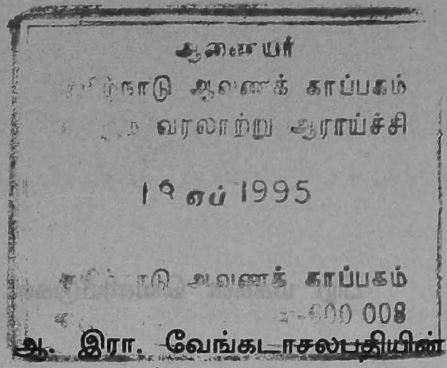 ஆணையர்
தமிழ்நாடு ஆவணக் காப்பகம்
வரலாற்று ஆராய்ச்சி
ஏப் 1995
தமிழ்நாடு ஆவணக் காப்பகம்
600 008
ஆ. இரா. வேங்கடாசலபதியின்